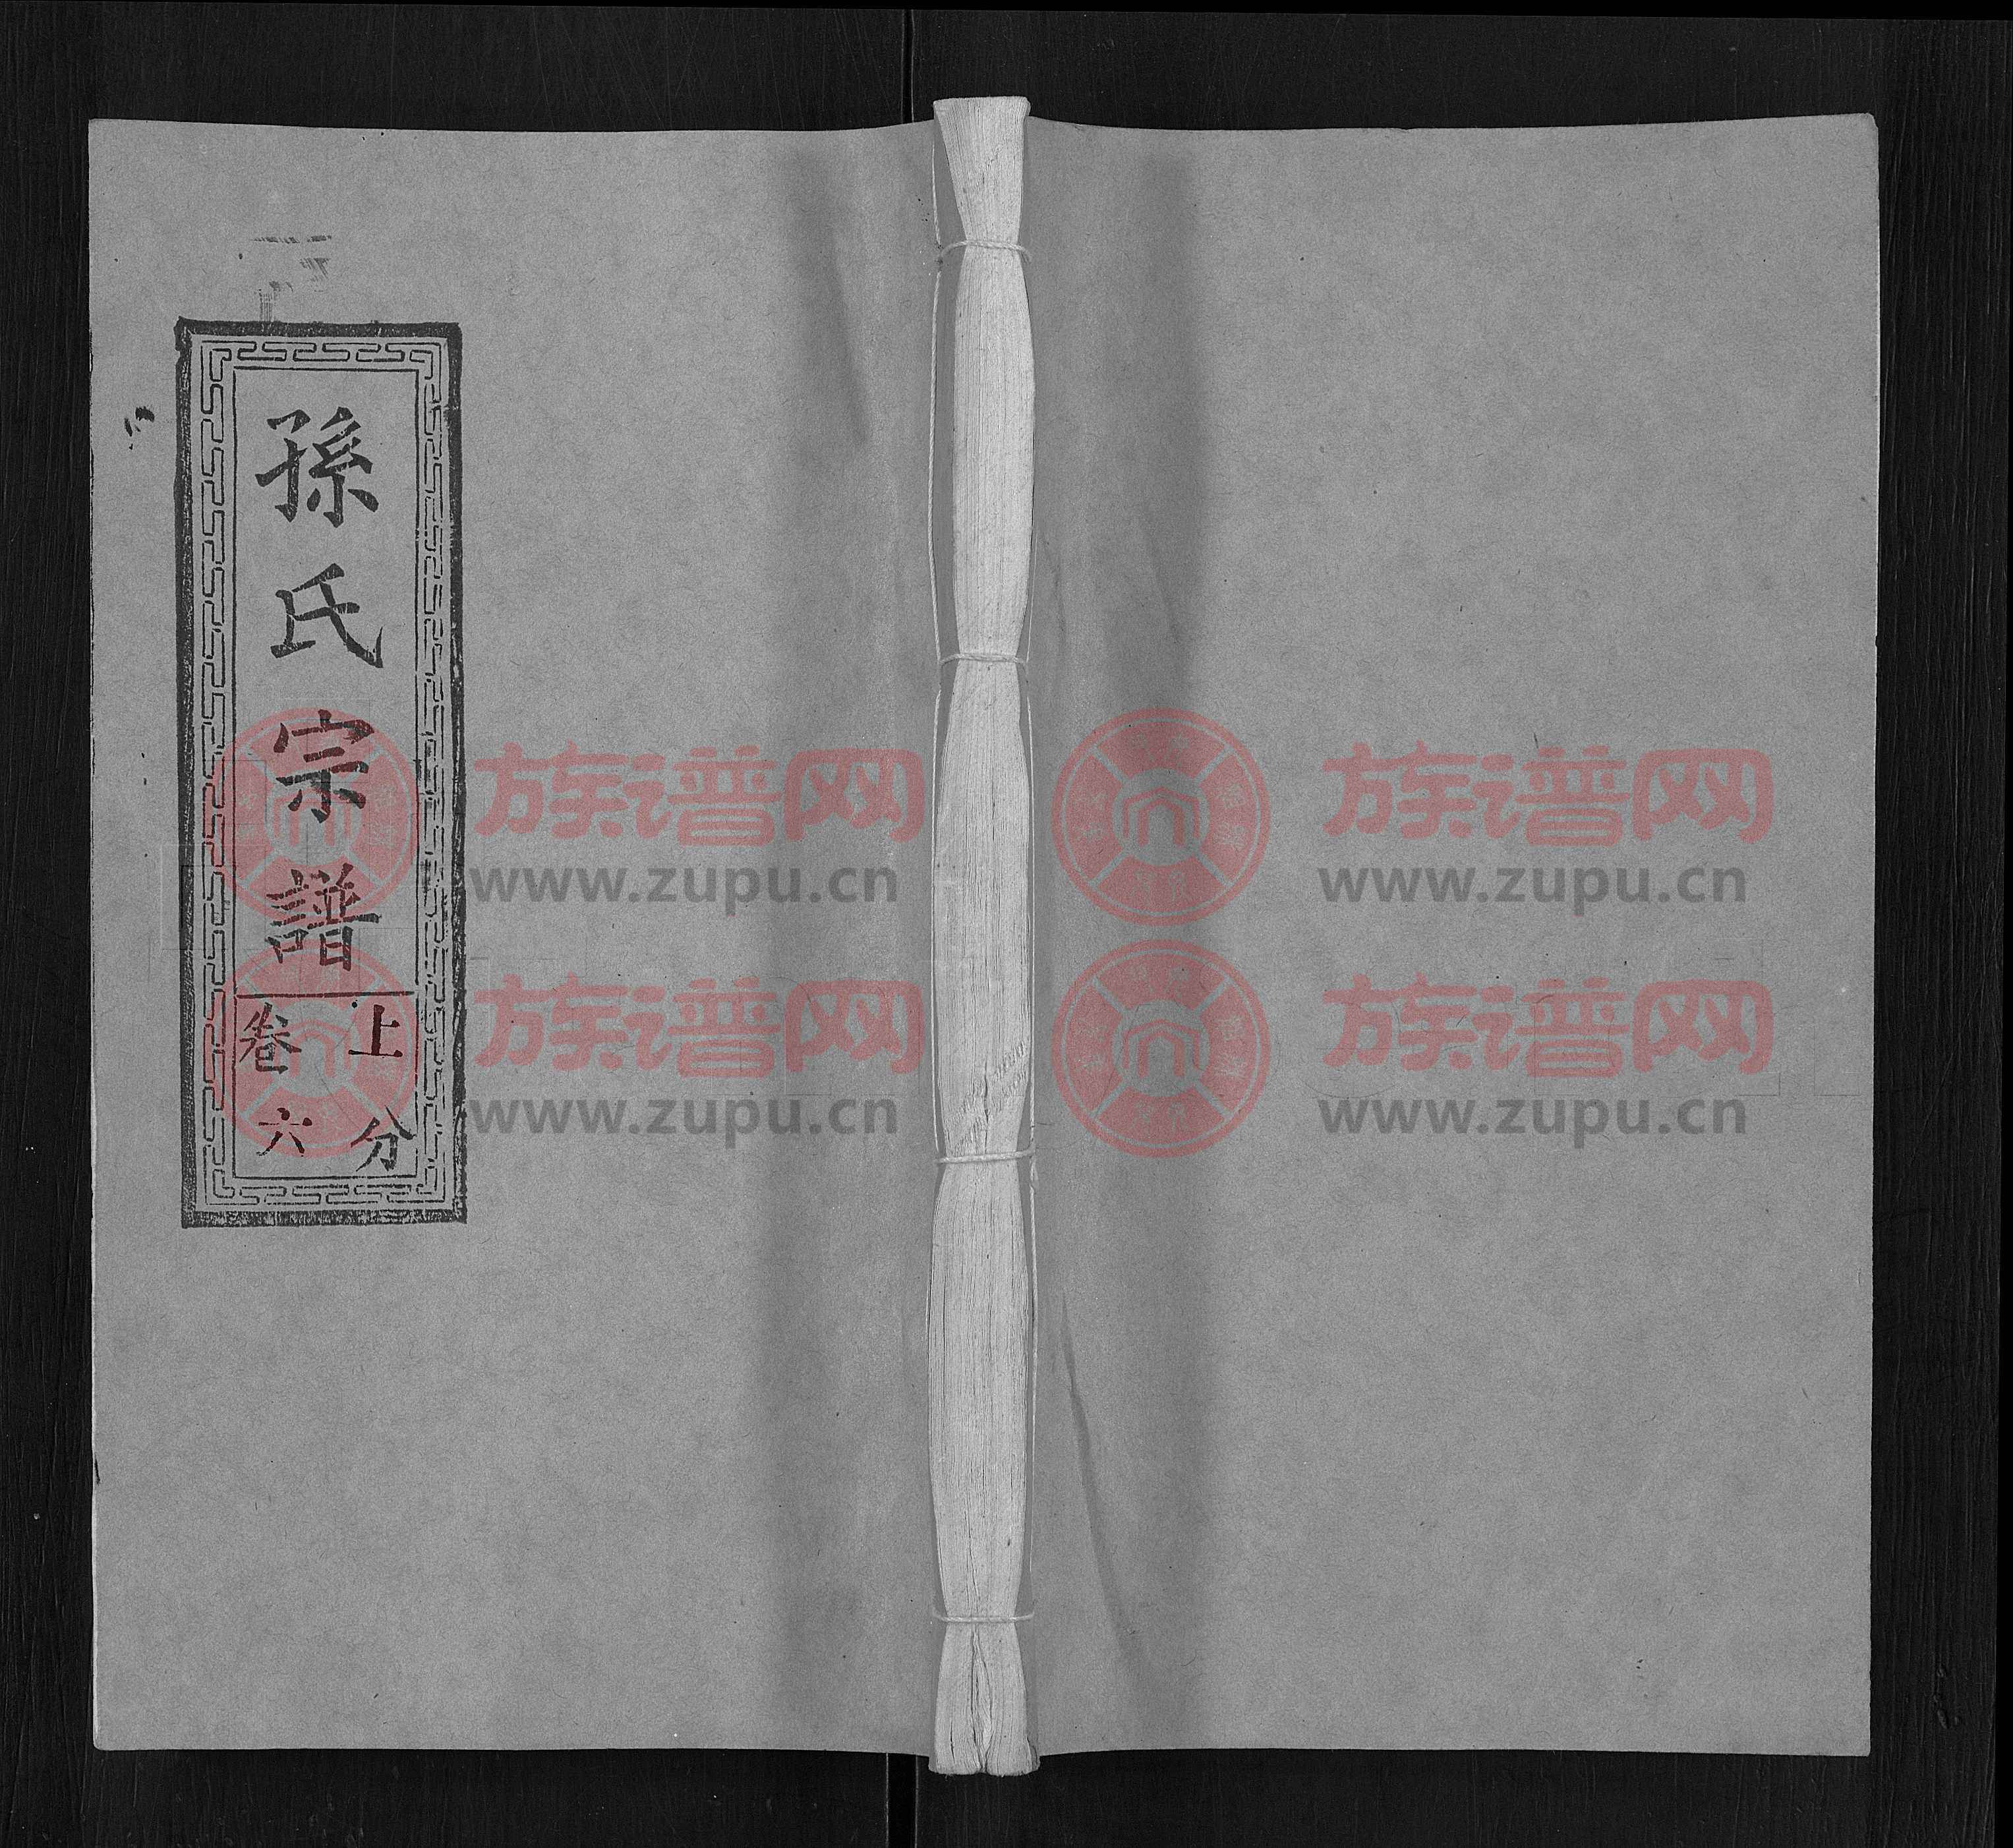 孫氏宗譜
上分
卷六
族谱网
www.zupu.cn
族谱网
www.zupu.cn
族谱网
www.zupu.cn
族谱网
www.zupu.cn